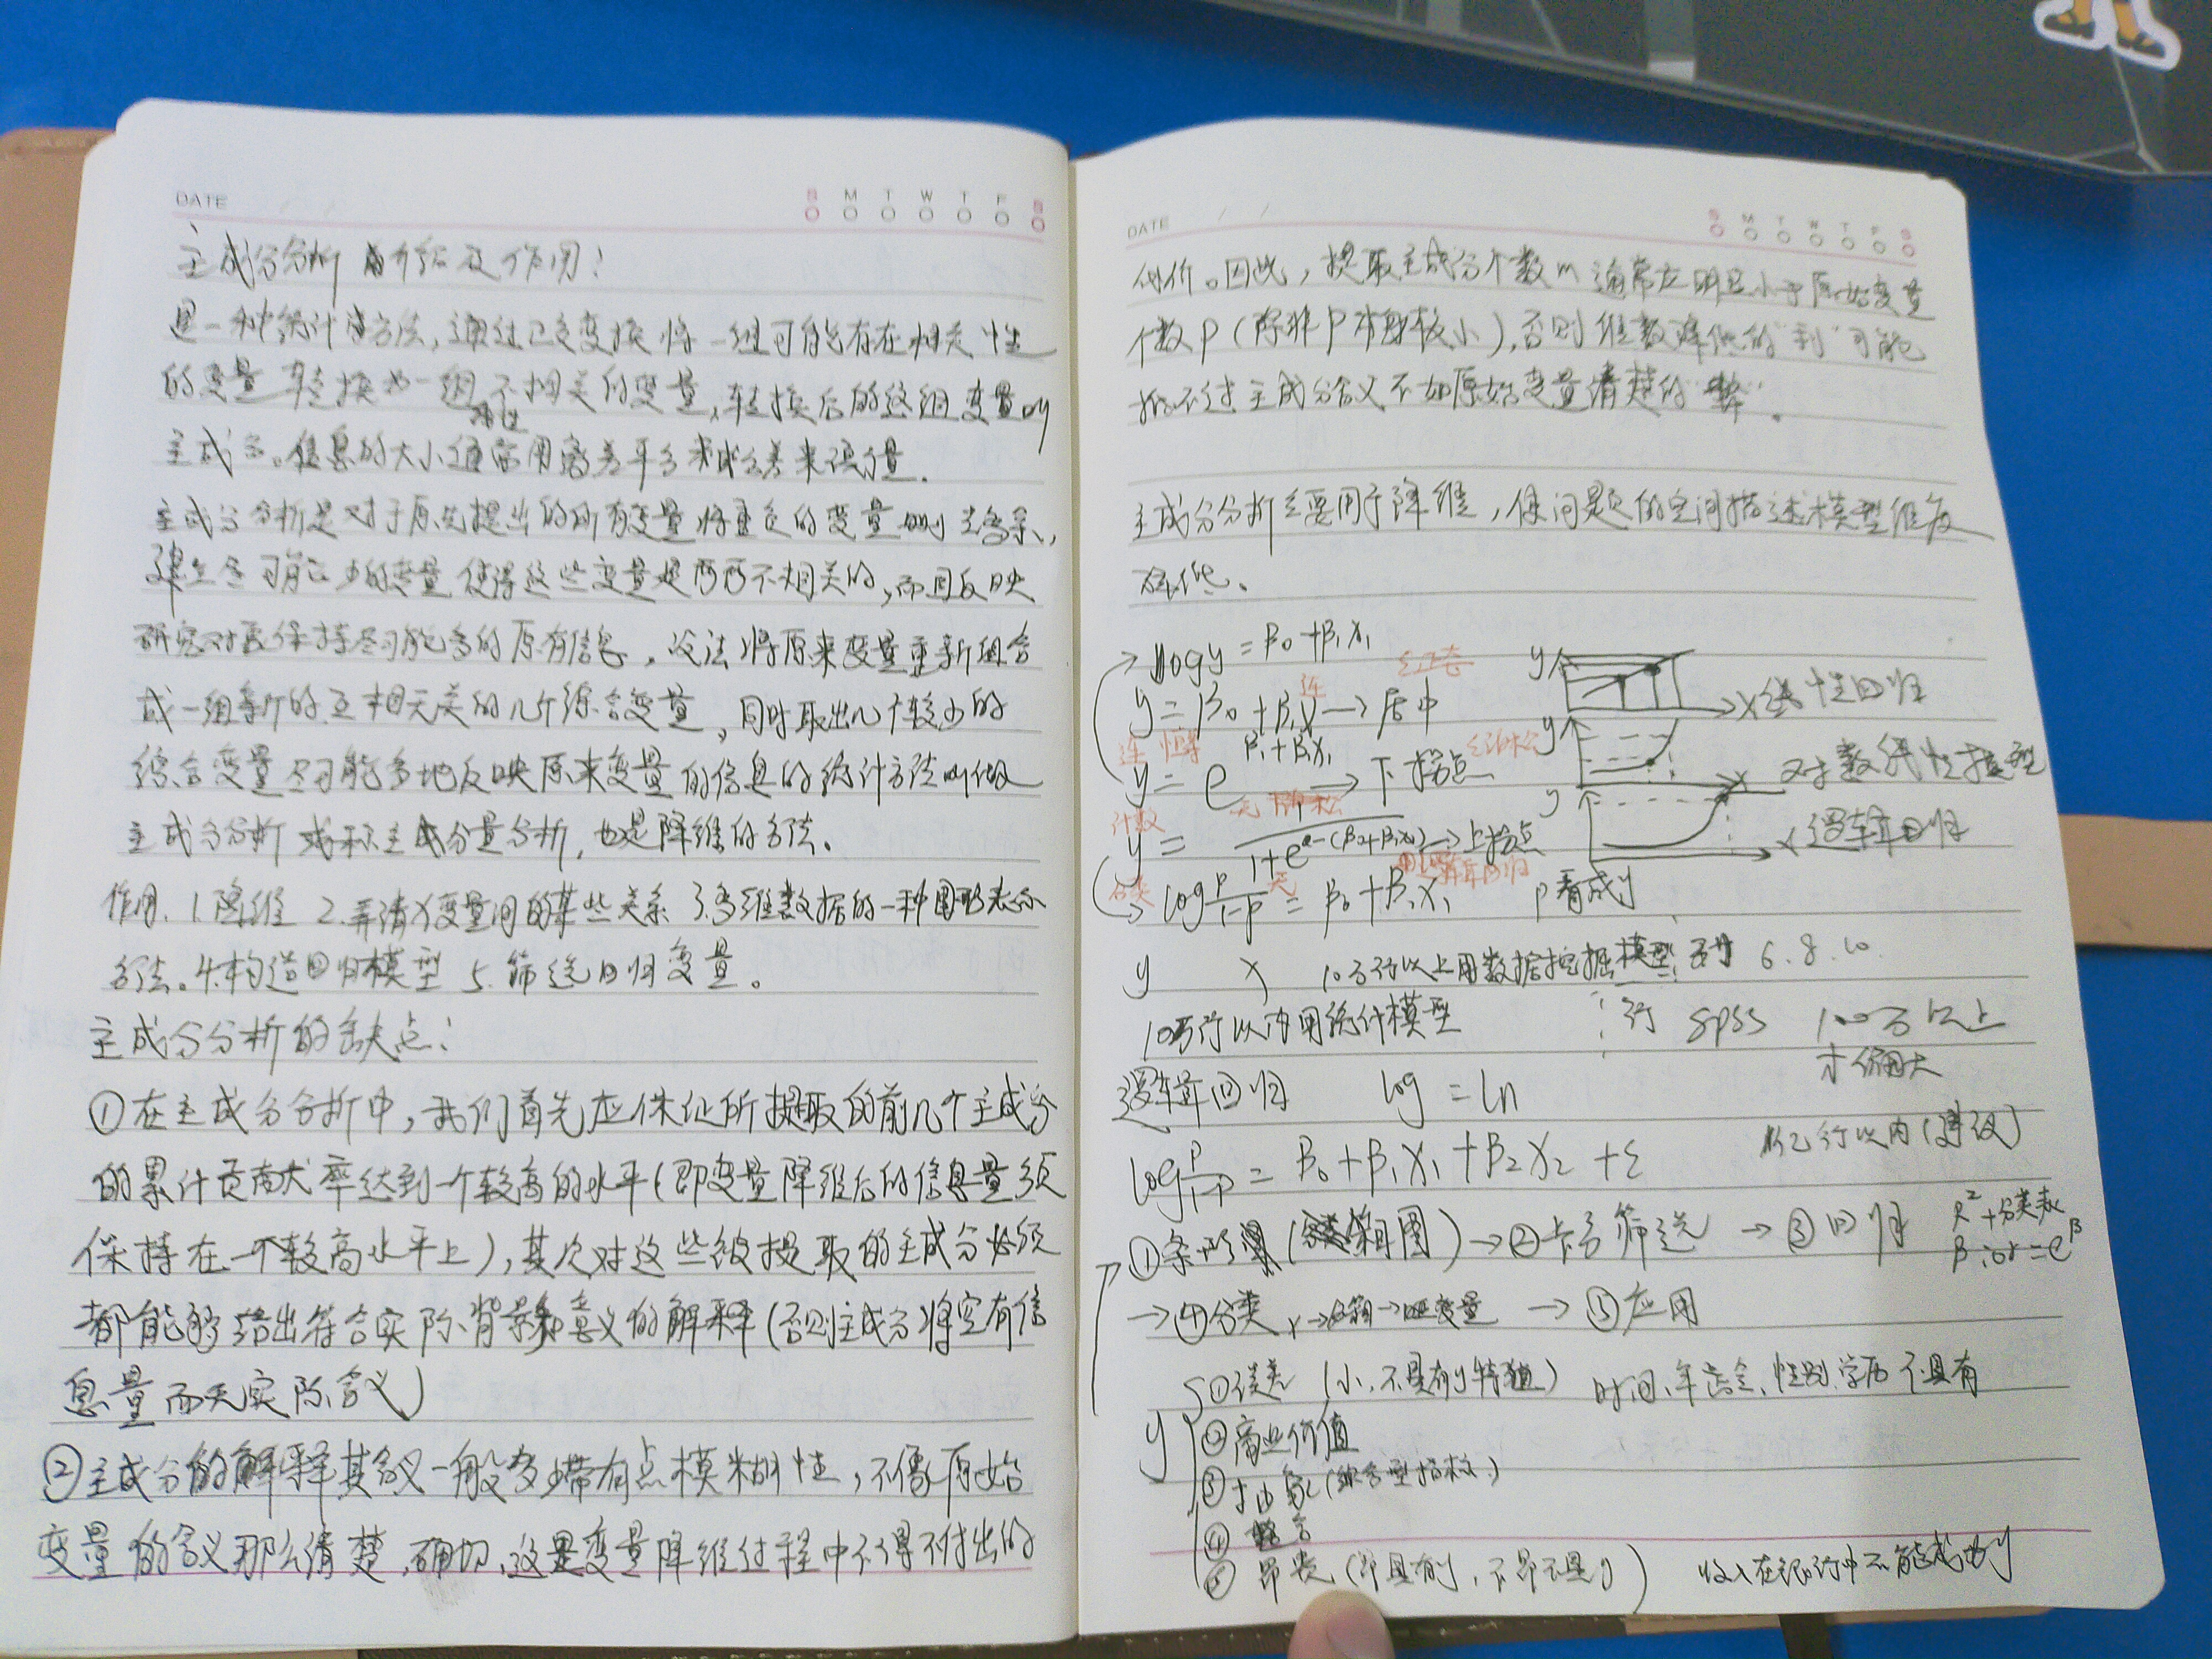 DATE
S M T W T F S
主成分分析 介绍及作用：
是一种统计方法，通过正交变换将一组可能存在相关性
的变量转换为一组 线性 不相关的变量，转换后的这组变量叫
主成分。信息的大小通常用离差平方和或方差来衡量。
主成分分析是对于原先提出的所有变量将重复的变量删去多余，
建立尽可能少的变量使得这些变量是两两不相关的，而且反映
研究对象保持尽可能多的原有信息，设法将原来变量重新组合
成一组新的互相无关的几个综合变量，同时取出几个较少的
综合变量尽可能多地反映原来变量的信息的统计方法叫做
主成分分析 或称主成分量分析，也是降维的方法。
作用 1.降维 2.弄清X变量间的某些关系 3.多维数据的一种图形表示
方法。4.构造回归模型 5.筛选回归变量。
主成分分析的缺点：
①在主成分分析中，我们首先应保证所提取的前几个主成分
的累计贡献率达到一个较高的水平（即变量降维后的信息量须
保持在一个较高水平上），其次对这些被提取的主成分必须
都能够给出符合实际背景和意义的解释（否则主成分将空有信
息量而无实际含义）
②主成分的解释其含义一般多少带有点模糊性，不像原始
变量的含义那么清楚、确切，这是变量降维过程中不得不付出的
DATE
S M T W T F S
代价。因此，提取主成分个数m通常应明显小于原始变量
个数P（除非P本身较小），否则维数降低的"利"可能
抵不过主成分含义不如原始变量清楚的"弊"。
主成分分析主要用于降维，使问题的空间描述模型维度
降低。
logy = β₀+β₁X₁
y = β₀+β₁ → 居中
y X 线性回归
连
y = e^β₁+β₁X₁ → 下拐点
y X 对数线性模型
计数 无
y = 1/(1+e^-(β₀+β₁X₁)) → 上拐点
y X 逻辑回归
分类 无 逻辑回归
log P/(1-P) = β₀+β₁X₁ P看成y
y X 10万行以上用数据挖掘模型 6.8.10
10万行以内用统计模型 行 SPSS 100万以上
逻辑回归 log = ln
log P/(1-P) = β₀+β₁X₁+β₂X₂+ε 亿行以内
① （箱图）→②卡方筛选 →③回归 R²+分类表
β or=e^β
→④分类 X→分箱→变量 →⑤应用
y ①误差（小，不具有y特征） 时间、年龄、性别、学历不具有
②商业价值
③抽象（综合型指标）
④
⑤昂贵（即具有y，不昂不是y） 收入在银行中不能成为y